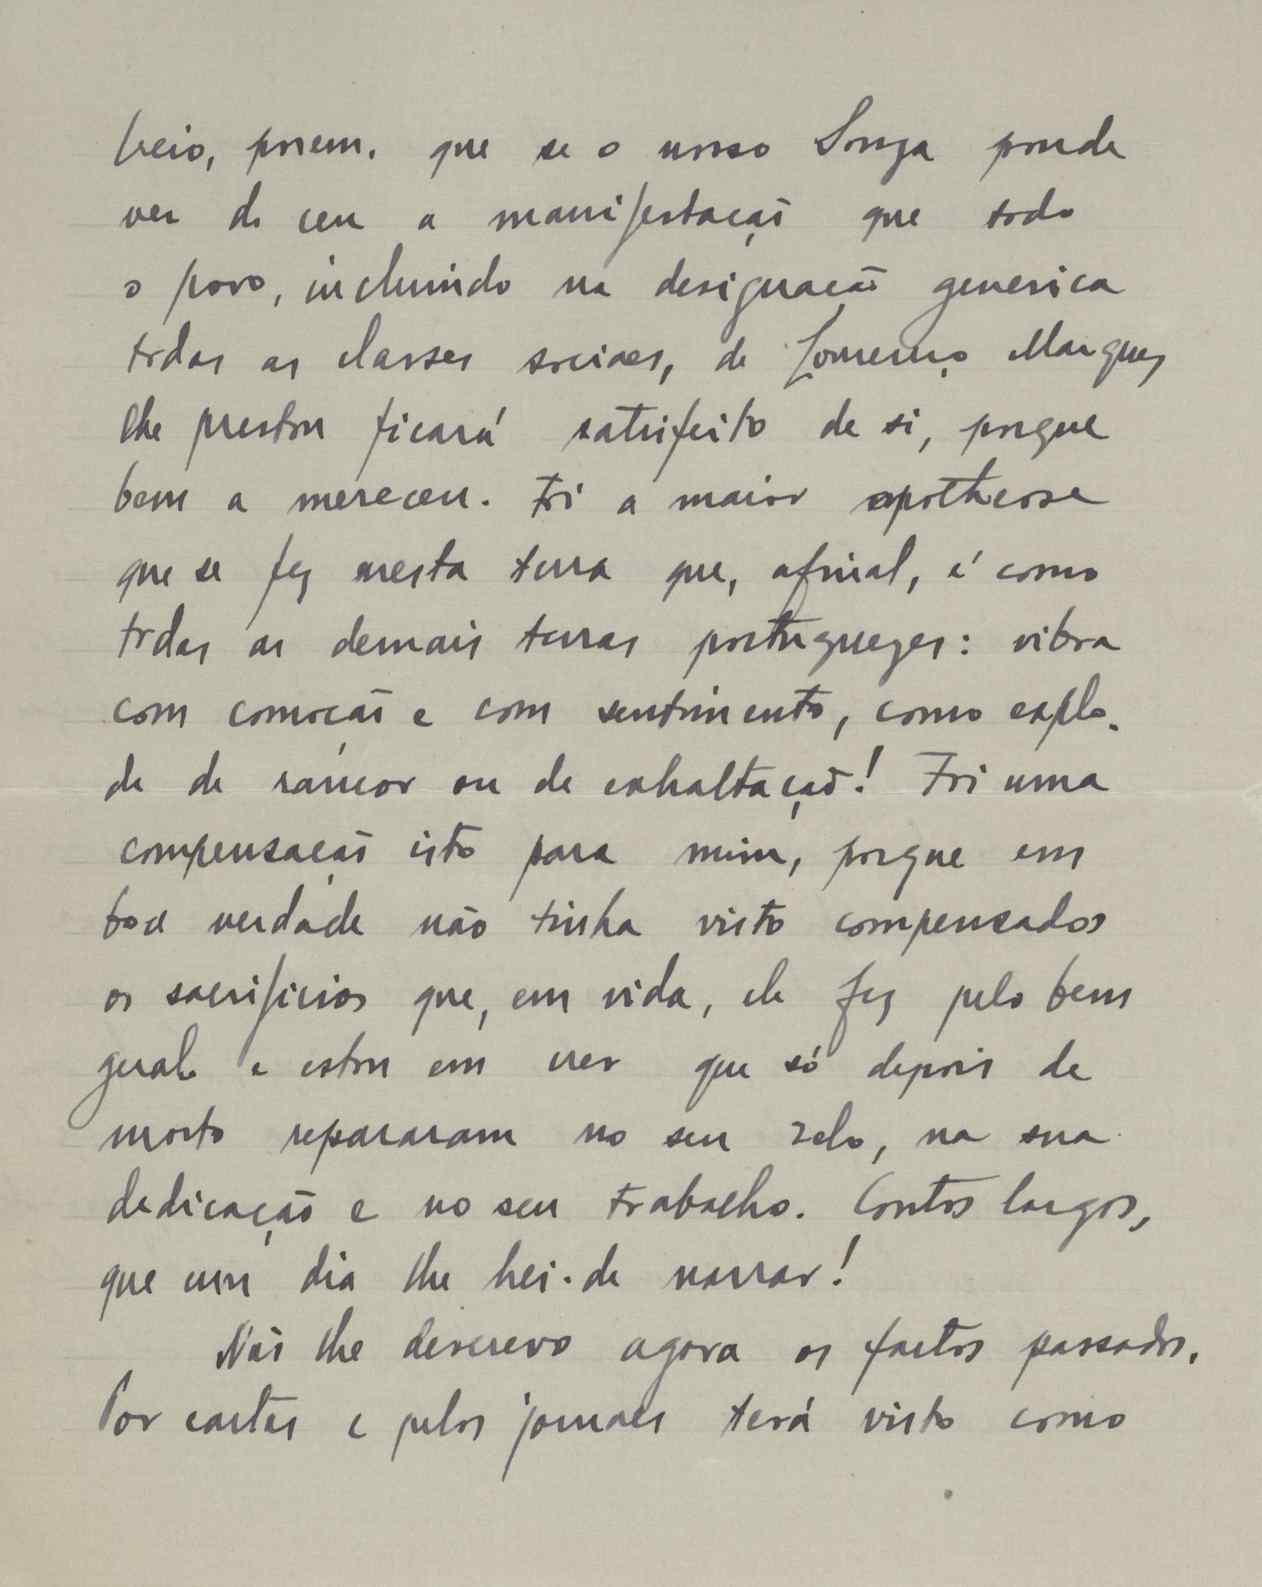 Creio, porem, que se o nosso Souza poude
ver do ceu a manifestação que todo
o povo, incluindo na designação generica
todas as classes sociaes, de Lourenço Marques
lhe prestou ficará satisfeito de si, porque
bem a mereceu. Foi a maior apotheose
que se fez nesta terra que, afinal, é como
todas as demais terras portuguezes: vibra
com comoção e com sentimento, como explo-
de de rancor ou de exhaltação! Foi uma
compensação isto para mim, porque em
boa verdade não tinha visto compensados
os sacrificios que, em vida, ele fez pelo bem
geral e estou em crer que só depois de
morto repararam no seu zelo, na sua
dedicação e no seu trabalho. Contos largos,
que um dia lhe hei-de narrar!
Não lhe descrevo agora os factos passados.
Por cartas e pelos jornaes terá visto como